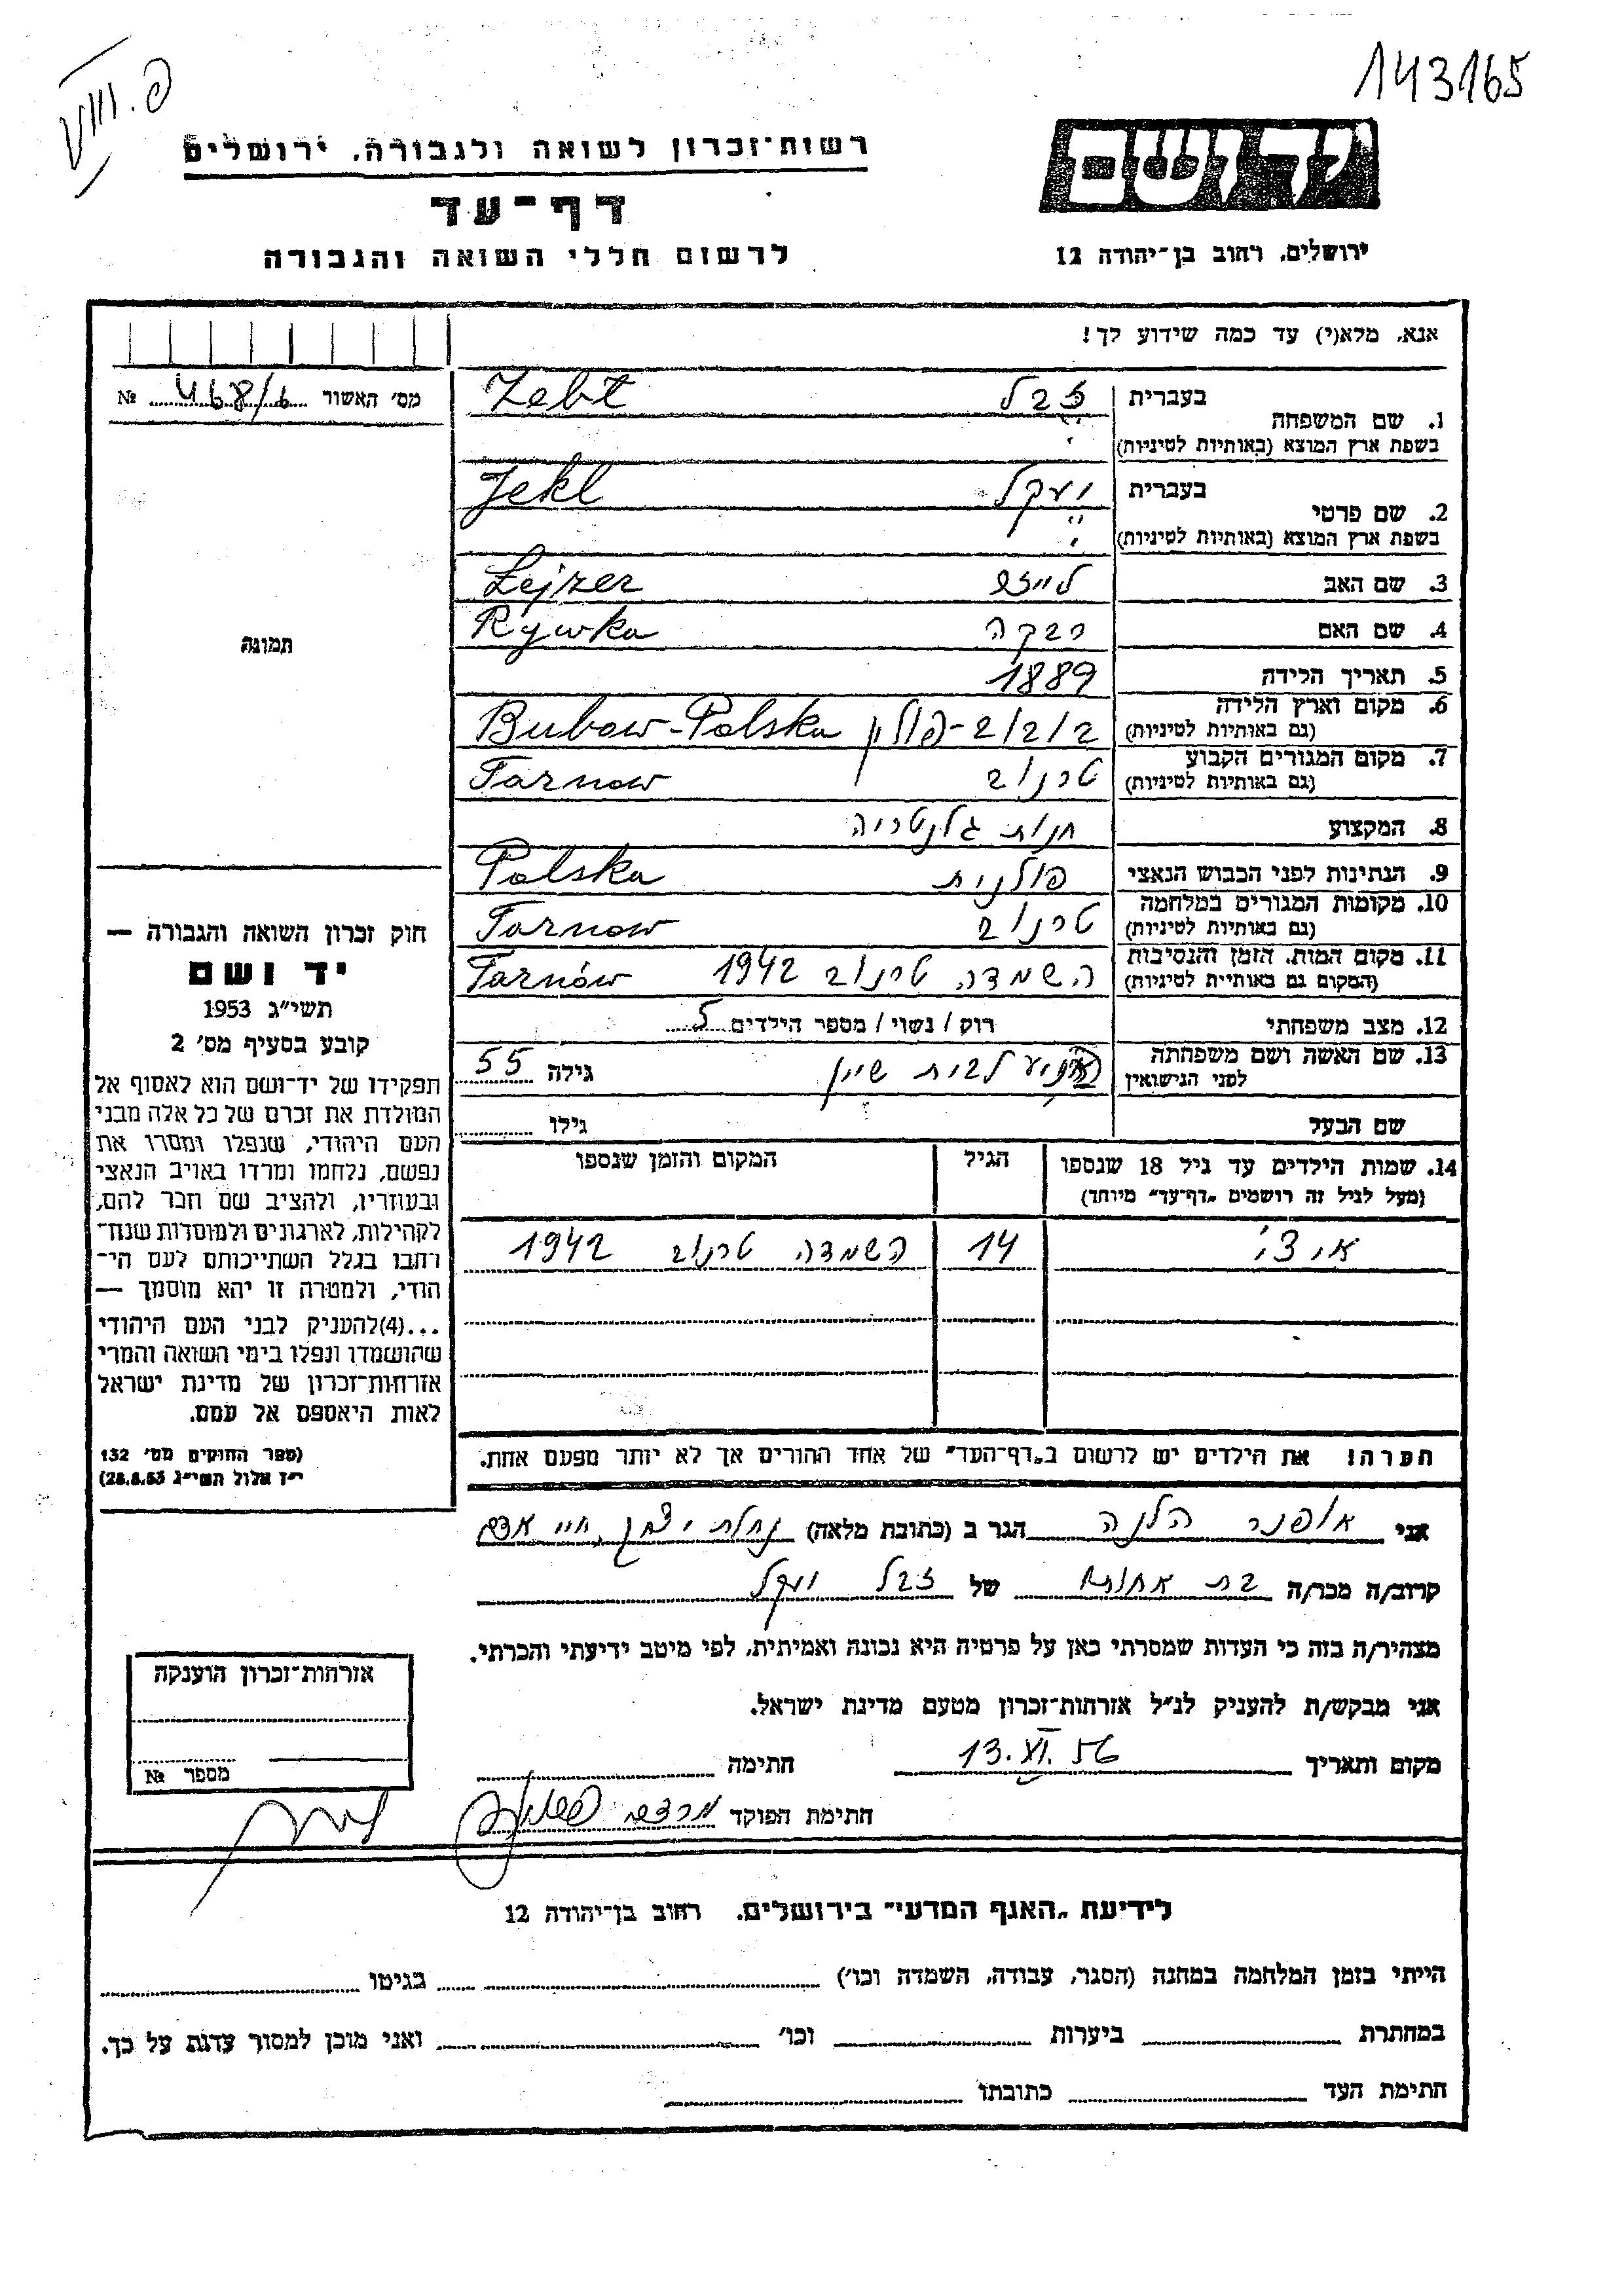 143165
ק. VIII
יד ושם
רשות־זכרון לשואה ולגבורה, ירושלים
דף־עד
לרשום חללי השואה והגבורה
ירושלים, רחוב בן־יהודה 12
אנא, מלא(י) עד כמה שידוע לך!
מס' האשור 468/6 №
1. שם המשפחה
בעברית זבל Zebł
בשפת ארץ המוצא (באותיות לטיניות)
2. שם פרטי
בעברית יעקל Jekl
בשפת ארץ המוצא (באותיות לטיניות)
3. שם האב לייזר Lejzer
4. שם האם רבקה Rywka
5. תאריך הלידה 1889
6. מקום וארץ הלידה בובוב-פולין Bubow-Polska
(גם באותיות לטיניות)
7. מקום המגורים הקבוע טרנוב Tarnow
(גם באותיות לטיניות)
8. המקצוע חנות גלנטריה
9. הנתינות לפני הכבוש הנאצי פולנית Polska
10. מקומות המגורים במלחמה טרנוב Tarnow
(גם באותיות לטיניות)
11. מקום המות, הזמן והנסיבות השמדה טרנוב 1942 Tarnów
(המקום גם באותיות לטיניות)
12. מצב משפחתי רוק / נשוי / מספר הילדים 5
13. שם האשה ושם משפחתה לבית שיין גילה 55
לפני הנישואין
שם הבעל גילו
14. שמות הילדים עד גיל 18 שנספו הגיל המקום והזמן שנספו
(מעל לגיל זה רושמים "דף־עד" מיוחד)
איצי 14 השמדה טרנוב 1942
הערה! את הילדים יש לרשום ב"דף־העד" של אחד ההורים אך לא יותר מפעם אחת.
תמונה
חוק זכרון השואה והגבורה —
יד ושם
תשי"ג 1953
קובע בסעיף מס' 2
תפקידו של יד־ושם הוא לאסוף אל
המולדת את זכרם של כל אלה מבני
העם היהודי, שנפלו ומסרו את
נפשם, נלחמו ומרדו באויב הנאצי
ובעוזריו, ולהציב שם וזכר להם,
לקהילות, לארגונים ולמוסדות שנח־
רבו בגלל השתייכותם לעם הי־
הודי, ולמטרה זו יהא מוסמך —
...(4)להעניק לבני העם היהודי
שהושמדו ונפלו בימי השואה והמרי
אזרחות־זכרון של מדינת ישראל
לאות היאספם אל עמם.
(ספר החוקים מס' 132
י"ז אלול תשי"ג 28.8.53)
אני אופנר הלנה הגר ב (כתובת מלאה) נחלת יצחק,
קרוב/ה מכר/ה בת אחות של זבל יעקל
מצהיר/ה בזה כי העדות שמסרתי כאן על פרטיה היא נכונה ואמיתית, לפי מיטב ידיעתי והכרתי.
אני מבקש/ת להעניק לנ"ל אזרחות־זכרון מטעם מדינת ישראל.
מקום ותאריך 13.XI.56 חתימה
חתימת הפוקד
אזרחות־זכרון הוענקה
מספר №
לידיעת "האגף המדעי" בירושלים, רחוב בן־יהודה 12
הייתי בזמן המלחמה במחנה (הסגר, עבודה, השמדה וכו') בגיטו
במחתרת ביערות וכו' ואני מוכן למסור עדות על כך.
חתימת העד כתובתו